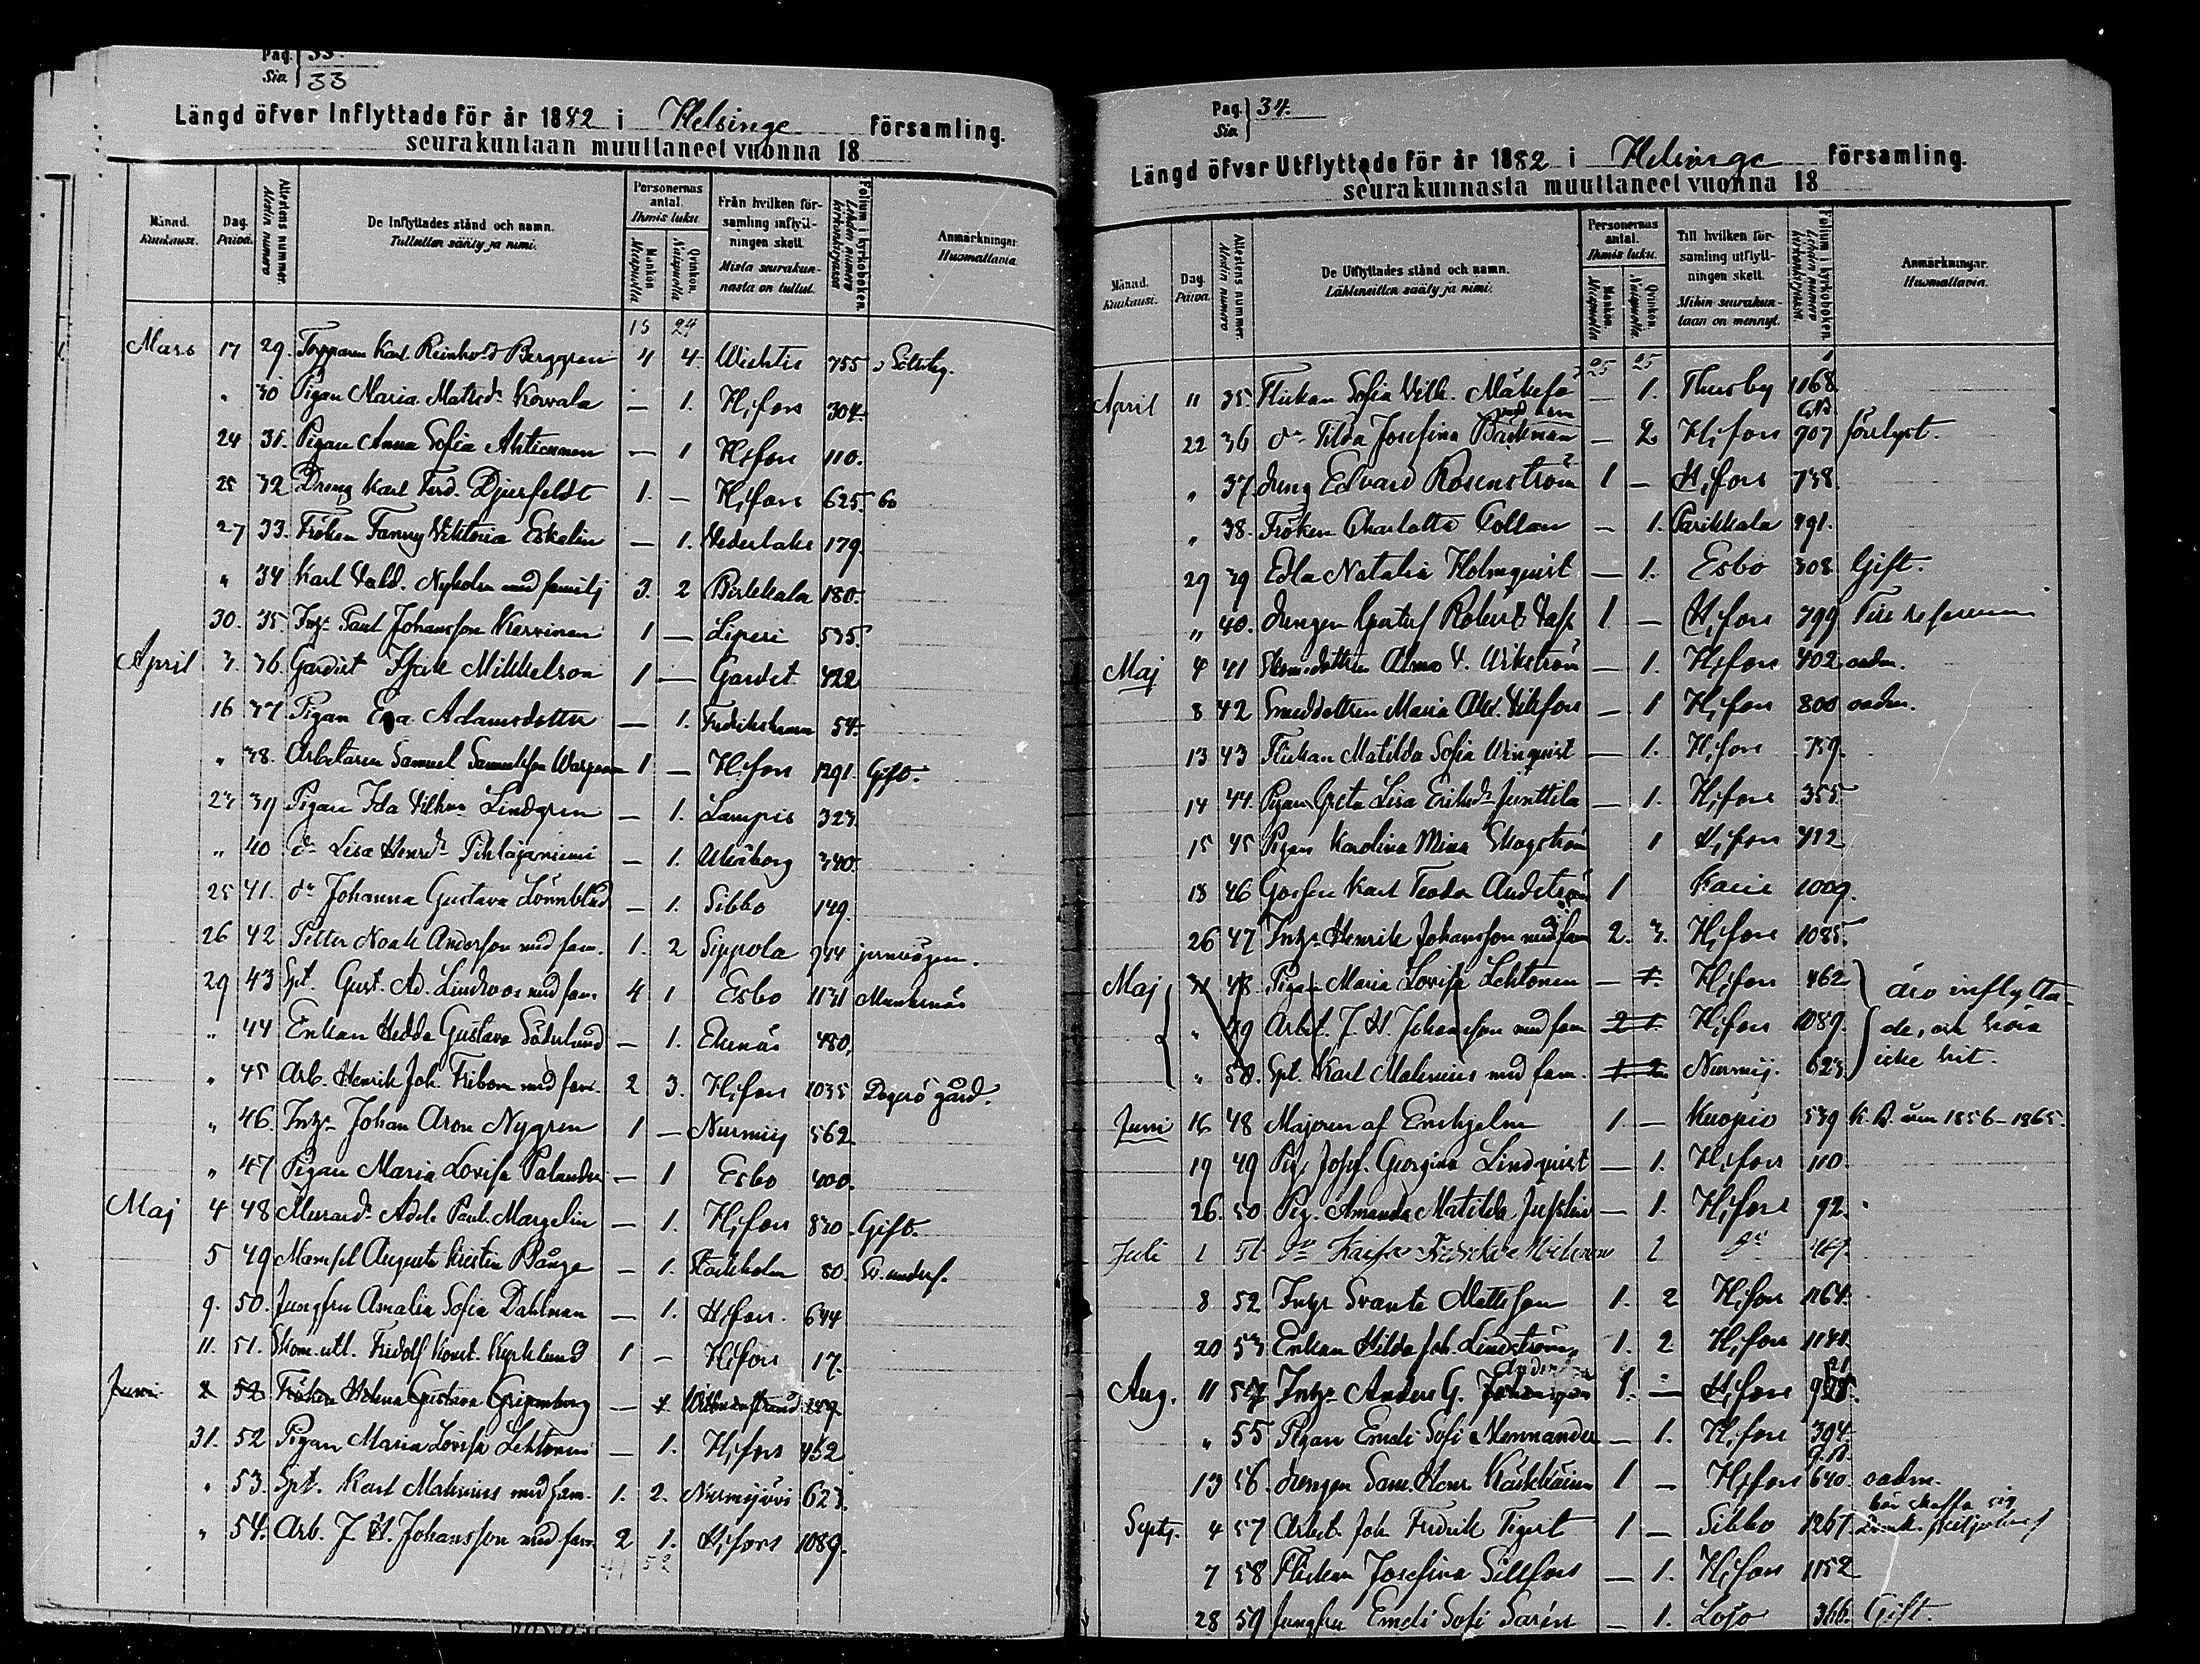 Pag. 33.
Siv. 33
Längd öfver Inflyttade för år 1882 i Helsinge församling.
seurakuntaan muuttaneet vuonna 18
Månad. Kuukausi. Dag. Päivä. Attestens nummer. Allestin numero De Inflyttades stånd och namn. Tulleitten sääty ja nimi. Personernas antal. Ihmis luku. Mankön Miespuolia Qvinkön. Naispuolia Från hvilken församling inflyttningen skett. Mista seurakunnasta on tullut. Folium i kyrkoboken. Lehden numero kirkonkirjassa Anmärkningar. Huomattavia.
15 24
Mars 17 29. Torparen Karl Reinhold Berggren 4 4. Wichtis 755
" 30 Pigan Maria Mattsdr Korvala — 1. H,fors 304.
24 31. Pigan Anna Sofia Ahtienen — 1 H,fors 110.
25 32 Dreng Karl Ferd. Djerfeldt 1. — H,fors 625.
27 33. Fröken Fanny Viktoria Eskelin — 1. Vederlaks 179.
" 34 Karl Vald. Nyholm med familj 3. 2 Birkkala 180.
30. 35. Inhs Paul Johansson Kervinen 1 — Liperi 535
April 3. 36. Gardist Isak Mikkelson 1 — Gardet 422
16 37 Pigan Eva Adamsdotter — 1. Fredrikshamn 54.
" 38. Arbetaren Samuel Samuelsson 1 — H,fors 1291 Gift.
23 39 Pigan Ida Vilhma Lindgren — 1. Lampis 323.
" 40 do Lisa Henrdr Pihlajaniemi — 1. Uleåborg 340.
25 41. do Johanna Gustava Lönnblad — 1. Sibbo 149.
26 42 Petter Noak Andersson med fam. 1. 2 Sippola 944 jernvägen.
29 43 Spt. Gust. Ad. Lindroos med fam. 4 1 Esbo 1131 Munknäs
" 44 Enkan Hedda Gustava Söderlund — 1. Ekenäs 480.
" 45 Arb. Henrik Joh. Fribom med fam. 2 3. H,fors 1035 Degerö gård.
" 46. Inhs Johan Aron Nygren 1 — Nurmij 562.
" 47 Pigan Maria Lovisa Palander — 1 Esbo 400.
Maj 4 48 Adele Paul. Margelin — 1. H,fors 830 Gift.
5 49 Mamsel Augusta Kristin Bånge — 1. Stockholm 80.
9. 50. Jungfru Amalia Sofia Dahlman — 1. H,fors. 644
11. 51. Skom. utl. Fridolf Konst. Kyrklund 1 — H,fors 17.
Juni 2 52 Fröken Helena Gustava Gripenberg — 1. Willmanstrand 249
31. 52 Pigan Maria Lovisa Lehtonen — 1. H,fors 462
" 53. Spt. Karl Malenius med fam. 1. 2. Nurmijärvi 623.
" 54. Arb. J. H. Johansson med fam. 2 1. H,fors 1089.
41 52
Pag. 34.
Siv.
Längd öfver Utflyttade för år 1882 i Helsinge församling.
seurakunnasta muuttaneet vuonna 18
Månad. Kuukausi. Dag. Päivä. Attestens nummer. Allestin numero De Utflyttades stånd och namn. Lähteneitten sääty ja nimi. Personernas antal. Ihmis luku. Mankön. Miespuolia Qvinkön. Naispuolia Till hvilken församling utflyttningen skett. Mihin seurakuntaan on mennyt. Folium i kyrkoboken. Lehden numero kirkonkirjassa Anmärkningar. Huomattavia.
25 25
April 11 35. Flickan Sofia Vilh. Mäkelä — 1. Thusby 1168.
22 36 do Tilda Josefina Bäckman — 2. H,fors 707 förlyst.
" 37. dreng Edvard Rosenström 1 — H,fors 738.
" 38. Fröken Charlotta Collan — 1. Parikkala 991.
29 39 Edla Natalia Holmqvist — 1. Esbo 308 Gift.
" 40. drengen Gustaf Robert 1 — H,fors 799
Maj 4 41 Alma V. Wikström — 1. H,fors 402 oadm.
8 42 Smeddottren Maria Alex. Vikfors — 1 H,fors 800 oadm.
13 43 Flickan Matilda Sofia Winqvist — 1. H,fors 759.
14 44. Pigan Greta Lisa Eriksdr Junttila — 1. H,fors 355.
15 45 Pigan Karolina Mina Skogström 1 H,fors 412
18 46 Gossen Karl Teodor 1 1009.
26 47 Inhs Henrik Johansson med fam 2. 3. H,fors 1085.
Maj 31 48. Pigan Maria Lovisa Lehtonen — 1. H,fors 462
" 49 Arbet. J. H. Johansson med fam 2 1. H,fors 1089.
" 50. Spt. Karl Malenius med fam. 1. 2 Nurmij. 623.
äro inflytta-
de, och höra
icke hit.
Juni 16 48 Majoren af Enehjelm 1. — Kuopio 539 K. B. 1856–1865.
19 49 Pig. Josef. Georgina Lindqvist — 1. H,fors 110.
26. 50 Pig. Amanda Matilda — 1. H,fors 92.
Juli 1 51 do Kaisa Fredrika 1 do 467.
8 52 Inhs Svante Mattsson 1. 2 H,fors 1164.
20 53 Enkan Hilda Joh. Lindström 1. 2 H,fors
Aug. 11 54 Inhs Anders G. Johansson 1. — H,fors
" 55 Pigan Emeli Sofi Mennander — 1. H,fors 304.
13 56. drengen Sam. Henr. Kärkkäinen 1 — H,fors 640. oadm.
Septr. 4 57 Arbet. Joh. Fredrik Tigert 1 — Sibbo 1261. bör skaffa sig
7 58 Flickan Josefina Sillfors — 1. H,fors 1152
28 59 Jungfru Emeli Sofi Sarén — 1. Lojo 366. Gift.